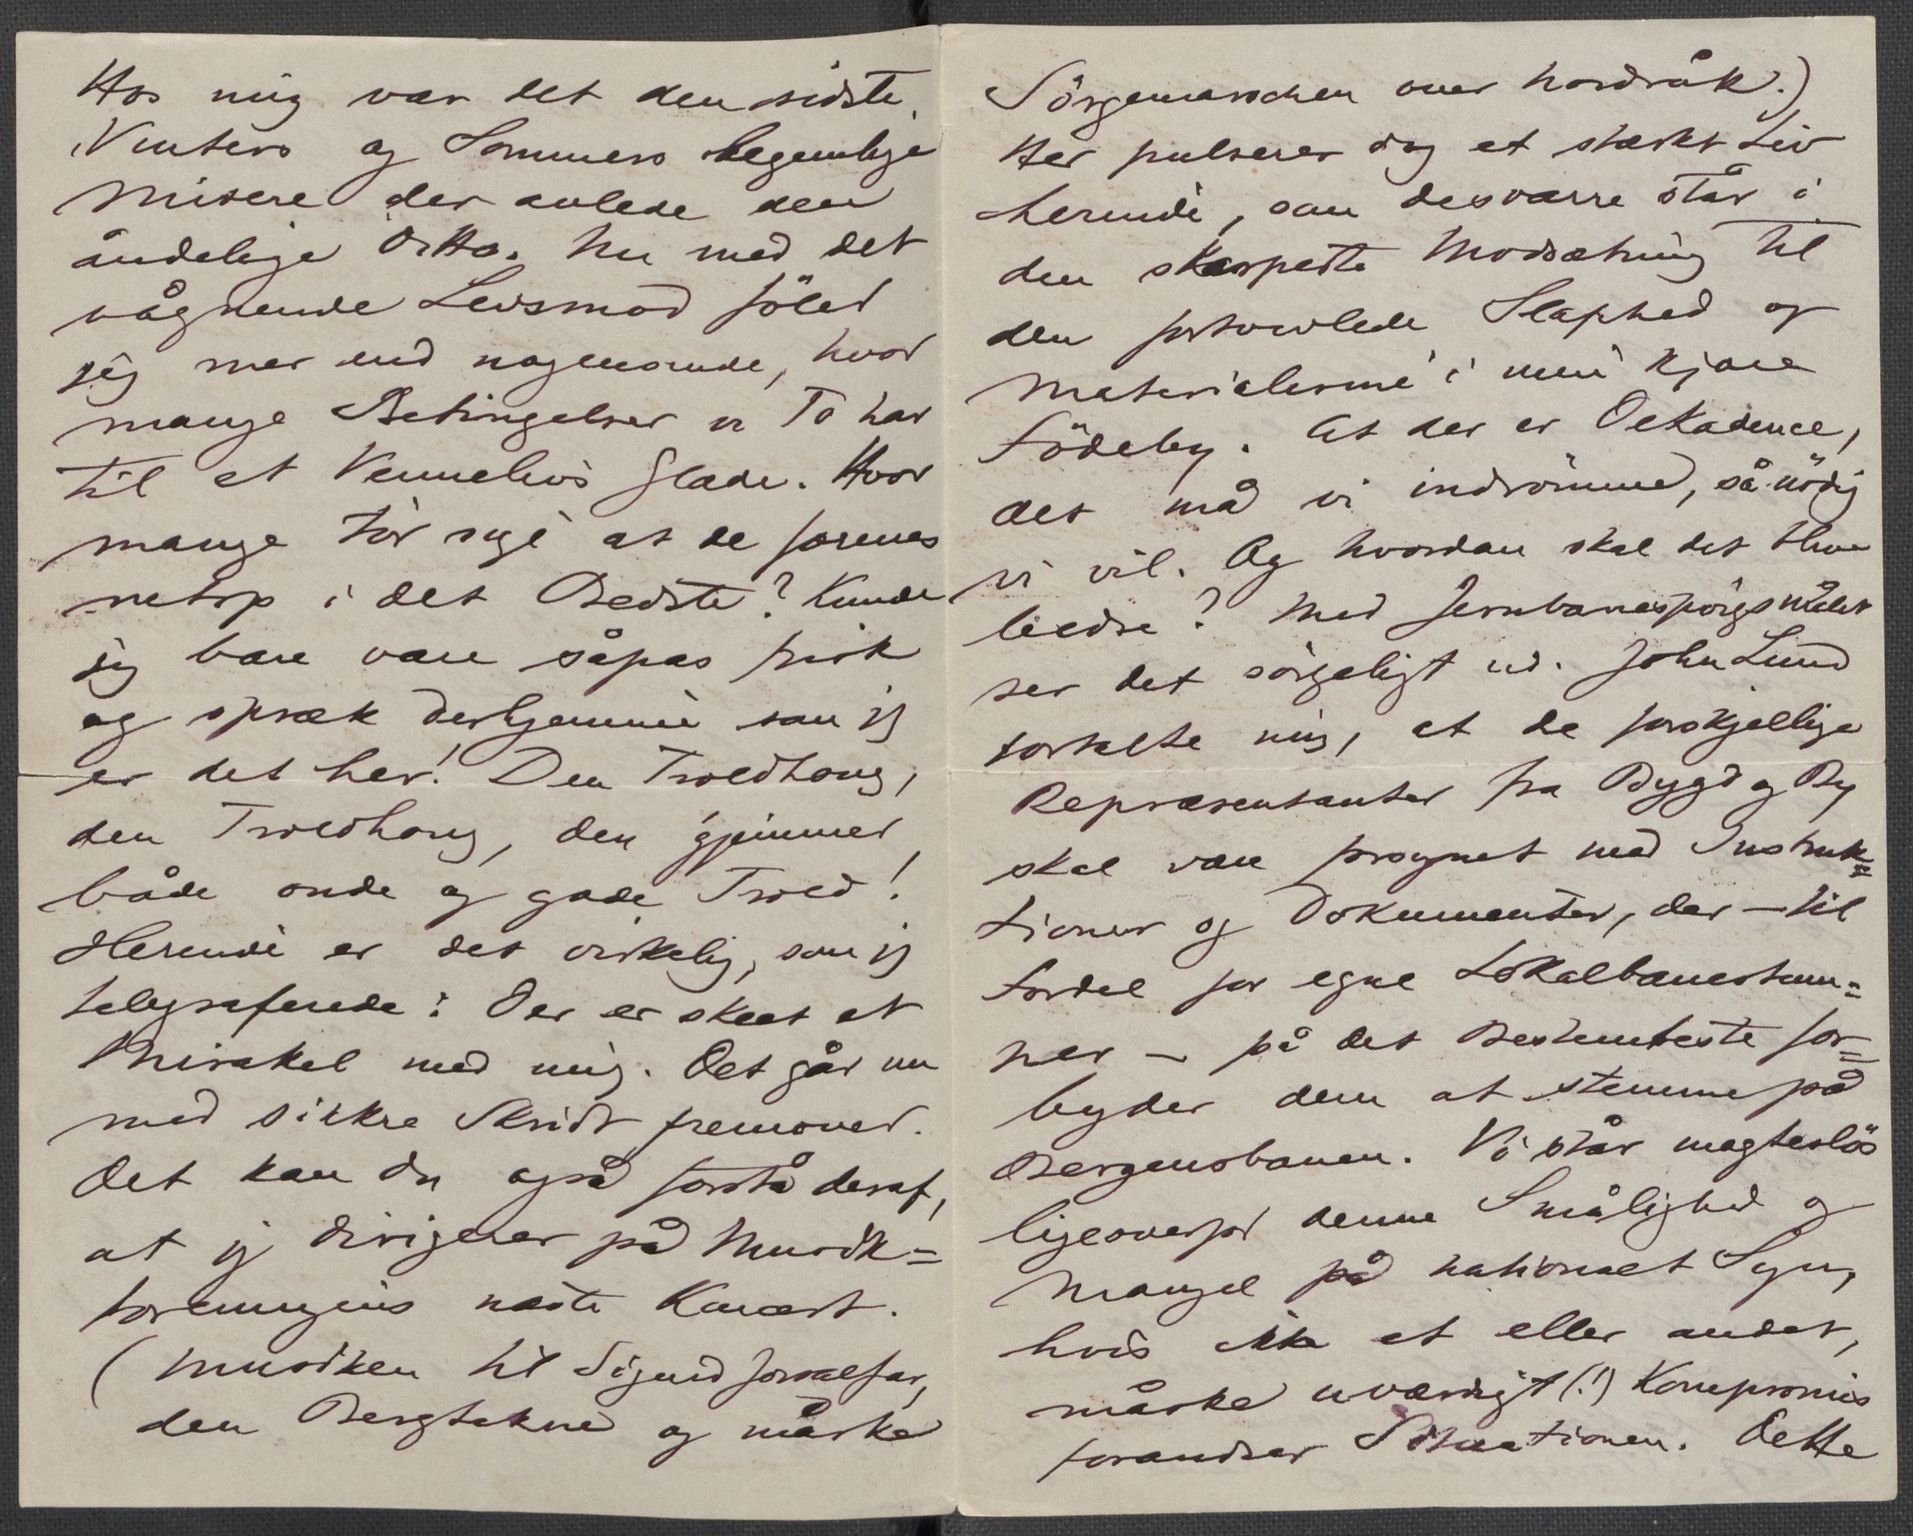 Hos mig var det den sidste
Vinters og Sommers legemlige
Misere der avlede den
åndelige Ditto. Nu med det
vågnende Livsmod föler
jeg mer end nogensinde, hvor
mange Betingelser vi To har
til et Vennelivs Glæde. Hvor
mange tör sige at de forenes
netop i det Bedste? Kunde
jeg bare være såpas frisk
og spræk derhjemme som jeg
er det her! Den Troldhoug,
den Troldhoug, den gjemmer
både onde og gode Trold!
Herinde er det virkelig, som jeg
telegraferede: Der er skeet et
Mirakel med mig. Det går nu
med sikkre Skridt fremover.
Det kan Du også forstå deraf,
at jeg dirigerer på Musik=
foreningens næste Koncert.
(Musiken til Sigurd Jorsalfar,
den Bergtekne og måske
Sörgemarschen over Nordråk.)
Her pulserer dog et stærkt Liv
herinde, som desværre står i
den skarpeste Modsætning til
den fortvivlede Slaphed og
Materialisme i min kjære
Födeby. At der er Dekadence,
det må vi indrömme, så nödig
vi vil. Og hvordan skal det blive
bedre? Med Jernbanespörgsmålet
ser det sörgeligt ud. John Lund
fortalte mig, at de forskjellige
Repræsentanter fra Bygd og By
skal være forsynet med Instruk=
tioner og Dokumenter, der – til
Fordel for egne Lokalbanestum=
per – på det Bestemteste for=
byder dem at stemme på
Bergensbanen. Vi står magteslös
ligeoverfor denne Smålighed og
Mangel på nationalt Syn,
hvis ikke et eller andet,
måske uværdigt (!) Kompromis
forandrer Situationen. Dette